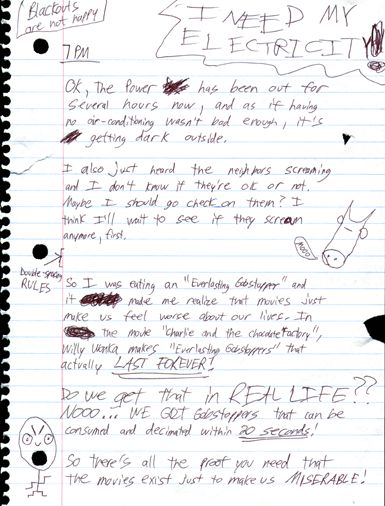 Blackouts
are not happy
I NEED MY
ELECTRICITY
7 PM
OK, The Power has been out for
several hours now, and as if having
no air-conditioning wasn't bad enough, it's
getting dark outside.
I also just heard the neighbors screaming
and I don't know if they're ok or not.
Maybe I should go check on them? I
think I'll wait to see if they scream
anymore, first.
MOOO
Double-spacing
RULES
So I was eating an "Everlasting Gobstopper" and
it made me realize that movies just
make us feel worse about our lives. In
the movie "Charlie and the chocolate factory",
Willy Wonka makes "Everlasting Gobstoppers" that
actually LAST FOREVER!
Do we get that in REAL LIFE??
NOOO... WE GOT Gobstoppers that can be
consumed and decimated within 20 seconds!
So there's all the proof you need that
the movies exist just to make us MISERABLE!